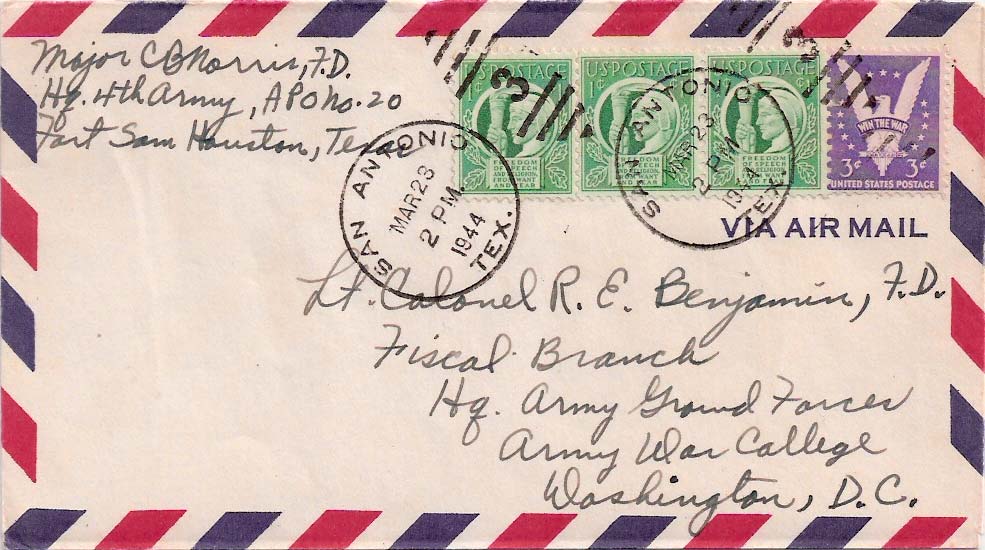 Major C B Norris, F.D.
Hq. 4th Army, APO No. 20
Fort Sam Houston, Texas
U.S. POSTAGE
1¢
FREEDOM
OF SPEECH
AND RELIGION,
FROM WANT
AND FEAR
U.S. POSTAGE
1¢
FREEDOM
OF SPEECH
AND RELIGION,
FROM WANT
AND FEAR
U.S. POSTAGE
FREEDOM
OF SPEECH
AND RELIGION,
FROM WANT
AND FEAR
WIN THE WAR
3¢ 3¢
UNITED STATES POSTAGE
3
3
SAN ANTONIO TEX.
MAR 23
2 PM
1944
SAN ANTONIO TEX.
MAR 23
2 PM
1944
VIA AIR MAIL
Lt. Colonel R. E. Benjamin, F.D.
Fiscal Branch
Hq. Army Ground Forces
Army War College
Washington, D.C.